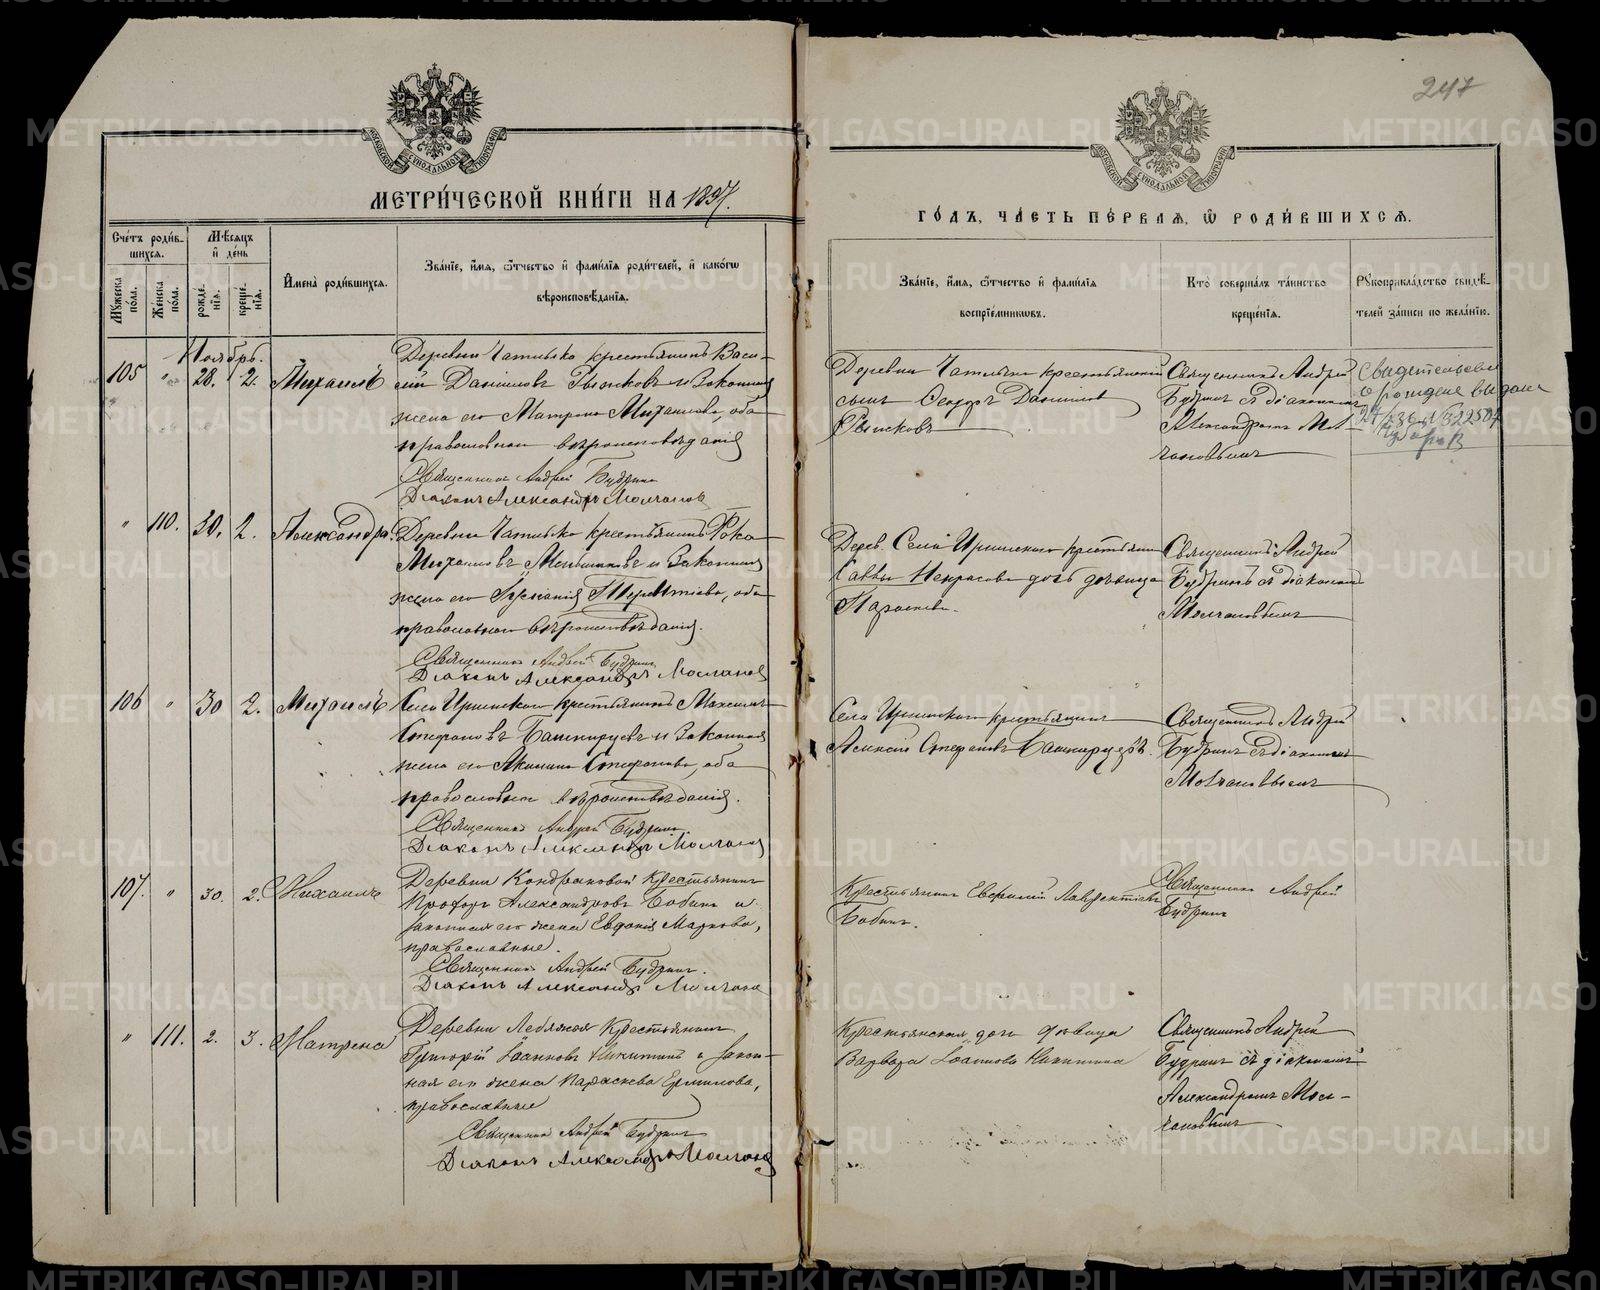 247
МЕТРИ́ЧЕСКОЙ КНИ́ГИ НА 1897.
ГО́ДЪ, ЧА́СТЬ ПЕ́РВАЯ, Ѡ РОДИ́ВШИХСЯ.
Сче́тъ роди́в-
шихся.
Мѣсяцъ
и́ де́нь
Мꙋжеска по́ла.
Же́нска по́ла.
рожде́нїя.
креще́нїя.
И́мена̀ роди́вшихся.
Зва́нїе, и́мя, ѻ́тчество и́ фами́лїя роди́телей, и́ како́гѡ
вѣроисповѣ́данїя.
Зва́нїе, и́мя, ѻ́тчество и́ фами́лїя
воспрїе́мниковъ.
Кто̀ соверша́лъ та́инство
креще́нїя.
Рꙋкоприкла́дство свидѣ́-
телей за́писи по жела́нїю.
Ноябрь.
105 " 28. 2. Михаилъ
Деревни крестьянинъ Васи-
лій Даниловъ и законная
жена его Матрона Михаилова, оба
православнаго вѣроисповѣданія
Священникъ Андрей Будринъ
Діаконъ Александръ Молчановъ
Деревни крестьянскій
сынъ Ѳеодоръ Даниловъ
Священникъ Андрей
Будринъ съ діакономъ
Александромъ Мол-
чановымъ
Свидетельство
о рождение выдано
" 110. 30. 2. Александра
Деревни крестьянинъ Фока
Михаиловъ Меньшиковъ и законная
жена его Терентіева, оба
православнаго вѣроисповѣданія.
Священникъ Андрей Будринъ
Діаконъ Александръ Молчановъ
Села Иргинскаго
Саввы Некрасова дочь дѣвица
Параскева.
Священникъ Андрей
Будринъ съ діакономъ
Молчановымъ
106 " 30 2. Михаилъ
Села Иргинскаго крестьянинъ Максимъ
Стефановъ Башкирцевъ и законная
жена его Акилина Стефанова, оба
православнаго вѣроисповѣданія.
Священникъ Андрей Будринъ.
Діаконъ Александръ Молчановъ
Села Иргинскаго крестьянинъ
Алексій Стефановъ Башкирцевъ.
Священникъ Андрей
Будринъ съ діакономъ
Молчановымъ
107. " 30. 2. Михаилъ
Деревни Кондраковой крестьянинъ
Александровъ Бабинъ и
законная его жена Евдокія Маркова,
православные.
Священникъ Андрей Будринъ.
Діаконъ Александръ Молчановъ
Крестьянинъ Евфимій Лаврентіевъ
Бабинъ.
Священникъ Андрей
Будринъ
" 111. 2. 3. Матрона
Деревни Лебяжей Крестьянинъ
Григорій Іоанновъ Никитинъ и закон-
ная его жена Параскева Ермилова,
православные
Священникъ Андрей Будринъ
Діаконъ Александръ Молчановъ
Крестьянская дочь дѣвица
Варвара Іоаннова Никитина
Священникъ Андрей
Будринъ съ діакономъ
Александромъ Мол-
чановымъ
METRIKI.GASO-URAL.RU